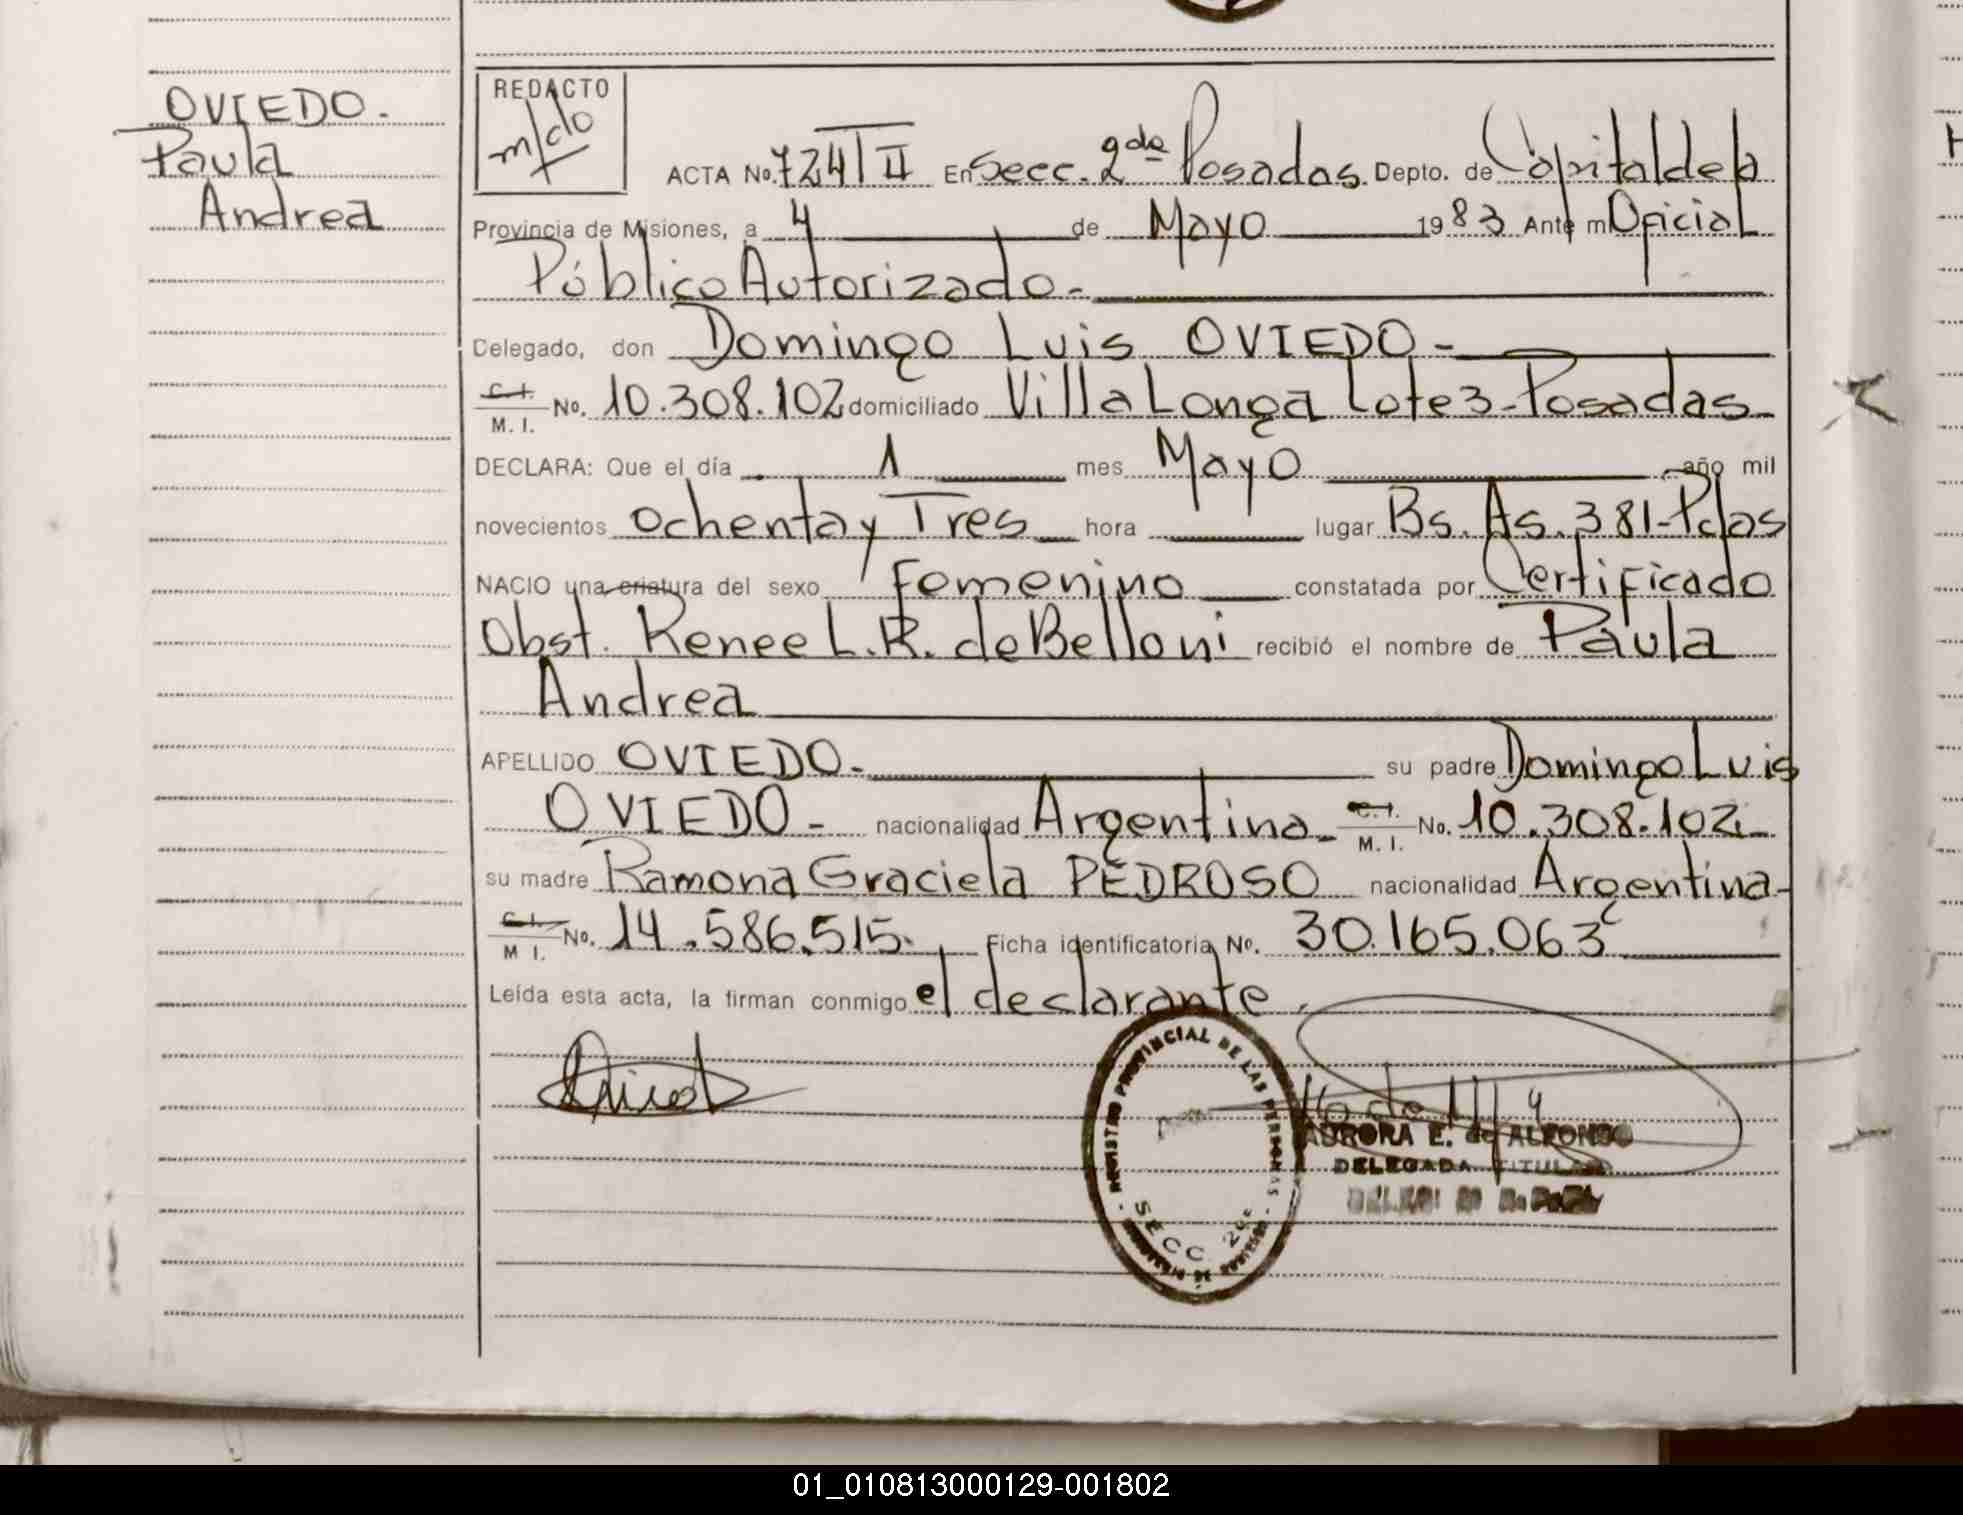 OVIEDO.
Paula
Andrea
REDACTO
m/do
ACTA No. 724/II En Secc. 2da Posadas. Depto. de Capital de la
Provincia de Misiones, a 4 de Mayo 1983 Ante mi Oficial
Público Autorizado-
Delegado, don Domingo Luis OVIEDO-
C.I.
M. I. No. 10.308.102 domiciliado Villa Longa Lote 3-Posadas
DECLARA: Que el día 1 mes Mayo año mil
novecientos ochenta y Tres hora lugar Bs. As. 381-Pdas
NACIO una criatura del sexo Femenino constatada por Certificado
Obst. Renee L.R. de Belloni recibió el nombre de Paula
Andrea
APELLIDO OVIEDO- su padre Domingo Luis
OVIEDO- nacionalidad Argentina- C.I. M. I. No. 10.308.102
su madre Ramona Graciela PEDROSO nacionalidad Argentina-
C.I. M I. No. 14.586.515. Ficha identificatoria No. 30.165.063
Leída esta acta, la firman conmigo el declarante.
REGISTRO PROVINCIAL DE LAS PERSONAS
SECC. 2da
AURORA E. de ALFONSO
DELEGADA TITULAR
01_010813000129-001802